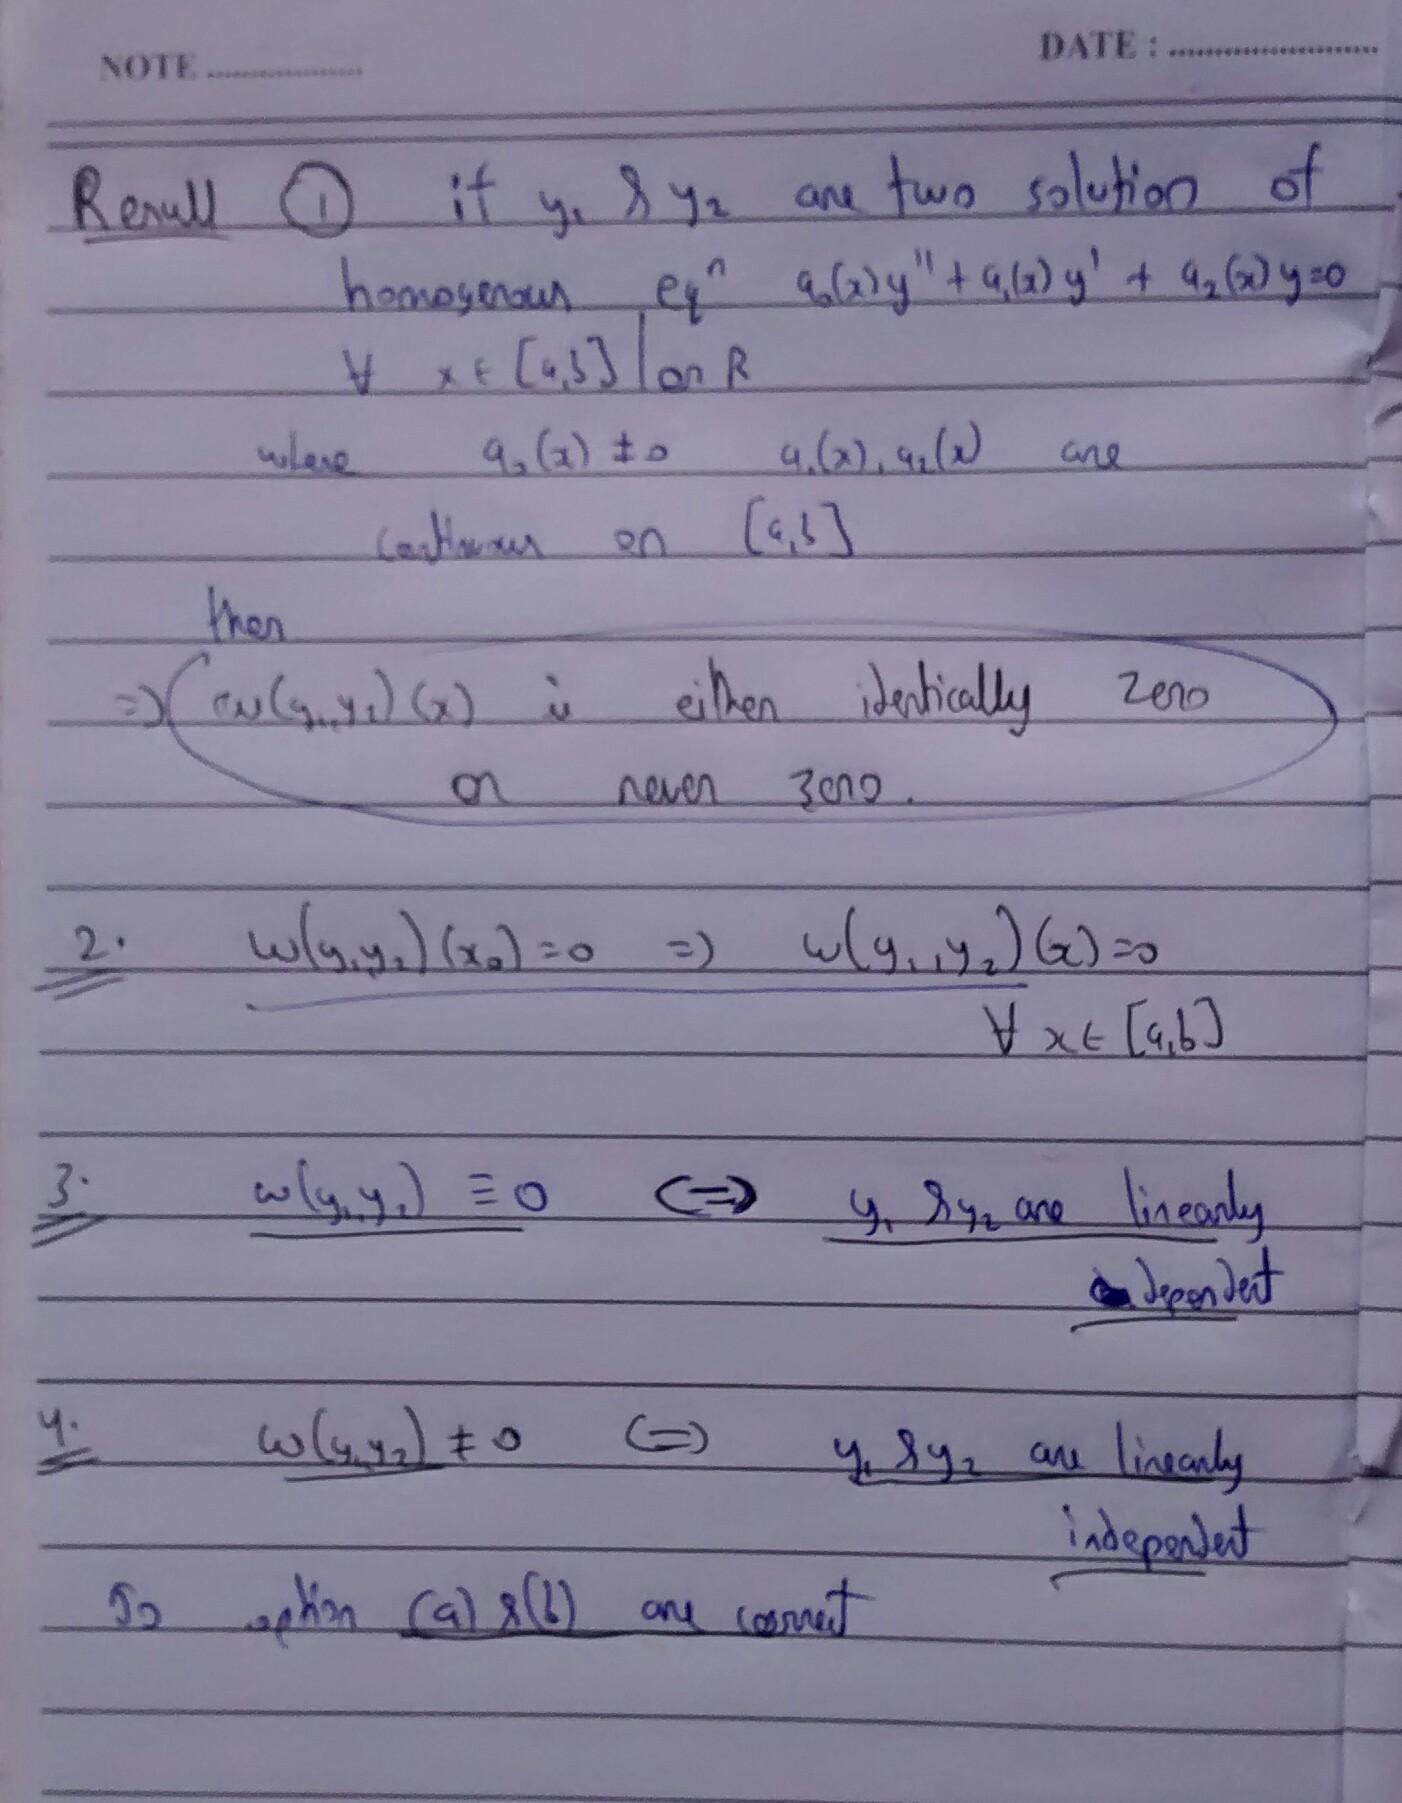 NOTE ..................
DATE : ..........................
Result ① if y₁ & y₂ are two solution of
homogenous eqⁿ a₀(x)y'' + a₁(x)y' + a₂(x)y=0
∀ x ∈ [a,b] | or R
where a₀(x) ≠ 0 a₁(x), a₂(x) are
continuous on [a,b]
then
⇒ w(y₁, y₂)(x) is either identically zero
or never zero.
2. w(y₁,y₂)(x₀)=0 ⇒ w(y₁,y₂)(x)=0
∀ x ∈ [a,b]
3. w(y₁,y₂) ≡ 0 ⇔ y₁ & y₂ are linearly
dependent
4. w(y₁,y₂) ≠ 0 ⇔ y₁ & y₂ are linearly
independent
So option (a) & (b) are correct